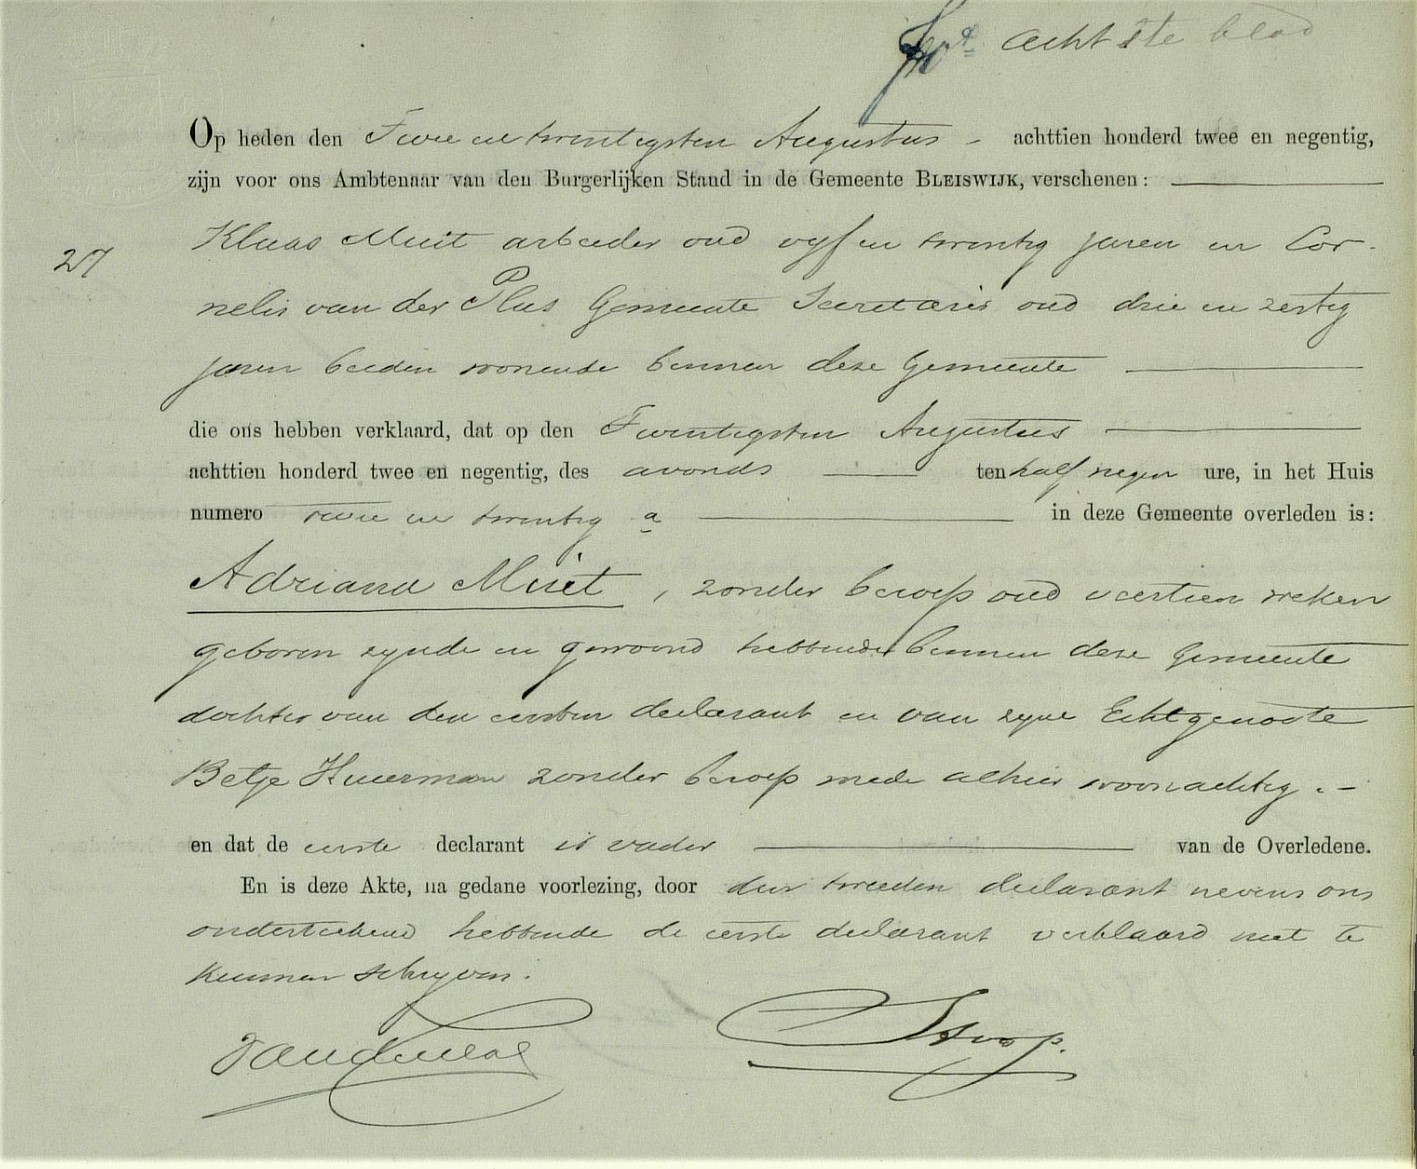 achtste blad
Op heden den Twee en twintigsten Augustus - achttien honderd twee en negentig,
zijn voor ons Ambtenaar van den Burgerlijken Stand in de Gemeente BLEISWIJK, verschenen:
27
Klaas Muit arbeider oud vyf en twintig jaren en Cor-
nelis van der Plas Gemeente Secretaris oud drie en zestig
jaren beiden wonende binnen deze Gemeente
die ons hebben verklaard, dat op den Twintigsten Augustus
achttien honderd twee en negentig, des avonds ten half negen ure, in het Huis
numero twee en twintig a in deze Gemeente overleden is:
Adriana Muit, zonder beroep oud veertien weken
geboren zynde en gewoond hebbende binnen deze Gemeente
dochter van den eersten declarant en van zyne Echtgenoote
Betje Huurman zonder beroep mede alhier woonachtig. -
en dat de eerste declarant is vader van de Overledene.
En is deze Akte, na gedane voorlezing, door den tweeden declarant nevens ons
onderteekend hebbende de eerste declarant verklaard niet te
kunnen schryven.